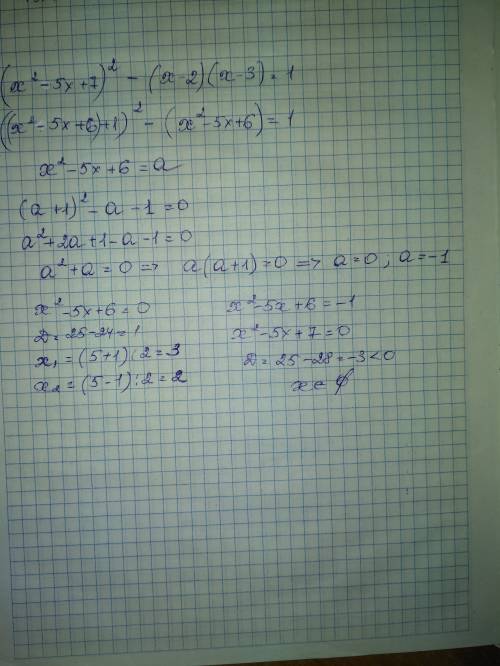 (x² - 5x + 7)² - (x - 2)(x - 3) = 1
((x² - 5x + 6) + 1)² - (x² - 5x + 6) = 1
x² - 5x + 6 = a
(a + 1)² - a - 1 = 0
a² + 2a + 1 - a - 1 = 0
a² + a = 0 => a(a + 1) = 0 => a = 0; a = -1
x² - 5x + 6 = 0
D = 25 - 24 = 1
x₁ = (5 + 1) : 2 = 3
x₂ = (5 - 1) : 2 = 2
x² - 5x + 6 = -1
x² - 5x + 7 = 0
D = 25 - 28 = -3 < 0
x ∈ ∅